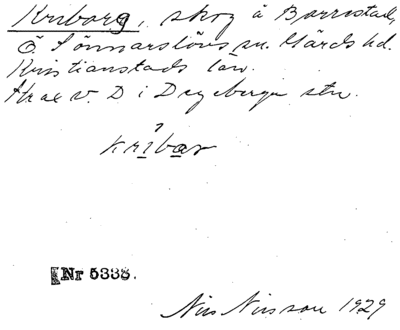 Kriborg, skog å Barrestad,
Ö. Sönnarslövs sn. Gärds hd.
Kristianstads län.
Strax v. D i Degeberga stn.
kribar
Nr 5338.
Nils Nilsson 1929